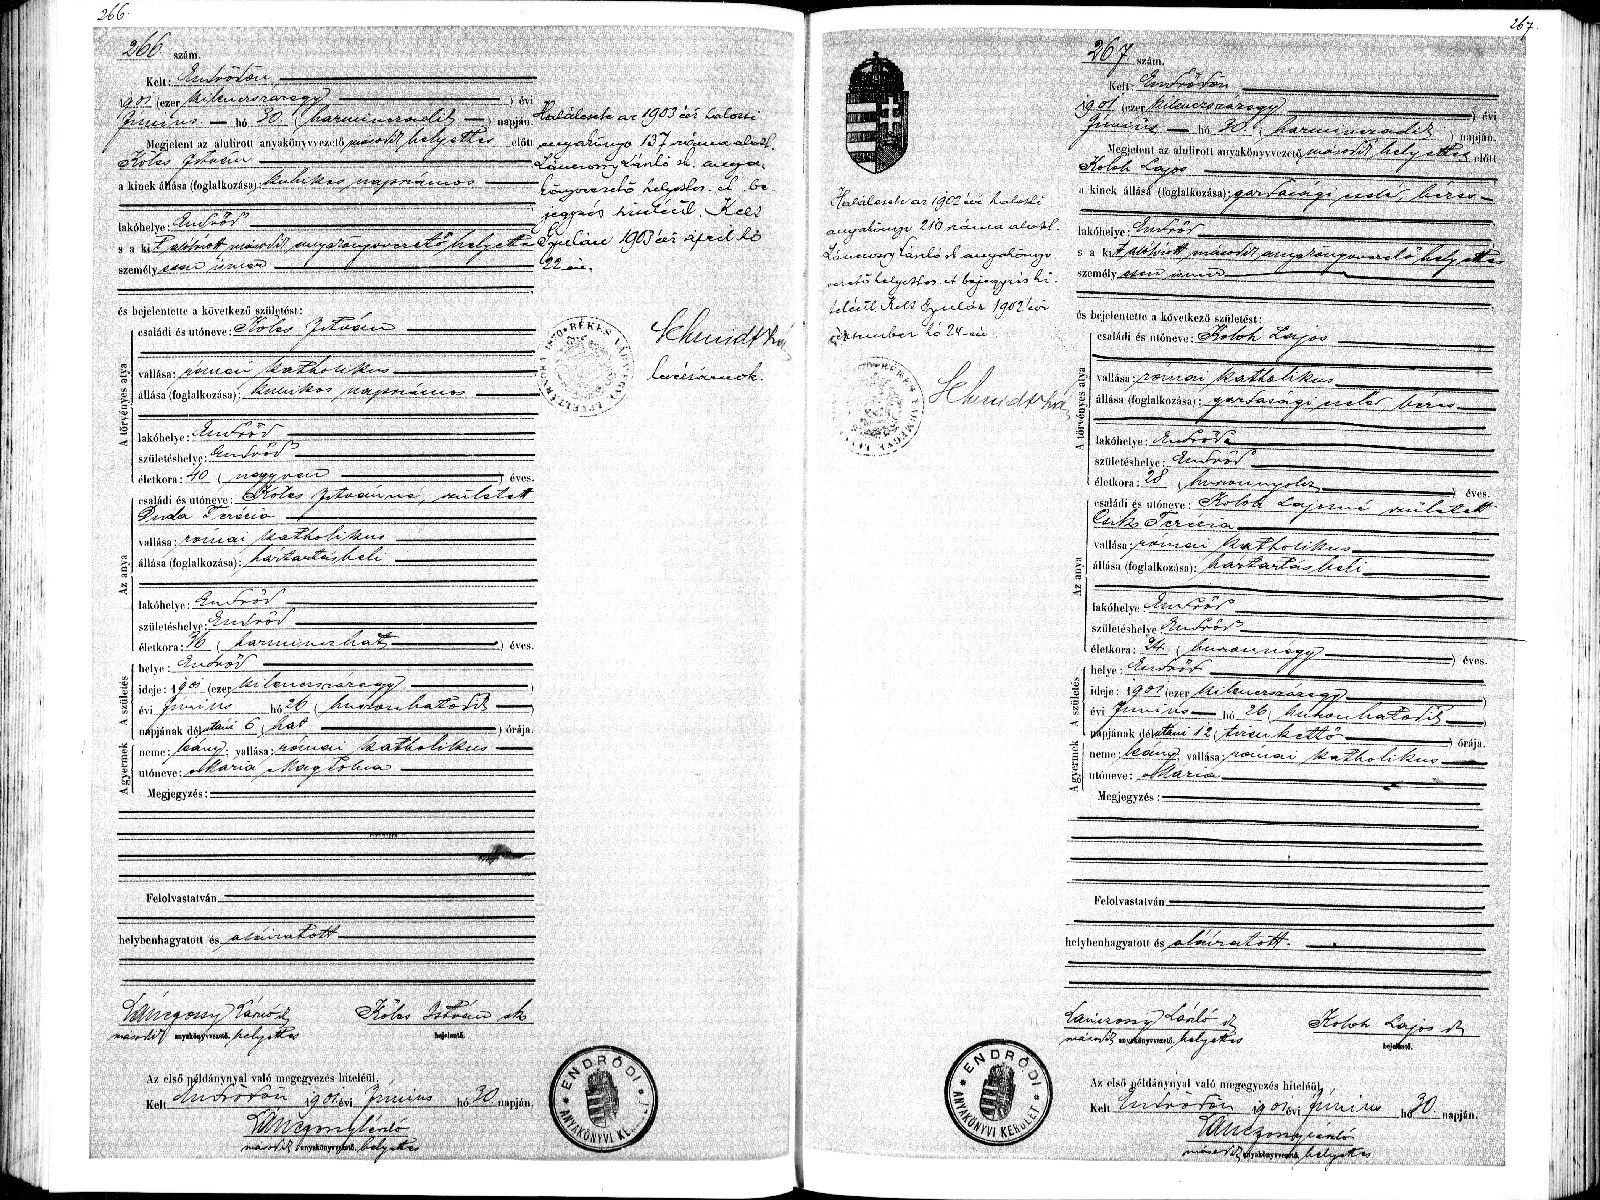 266.
266 szám.
Kelt: Endrődön
1901 (ezer kilenczszázegy) évi
Június hó 30. (harminczadik) napján.
Megjelent az alulirott anyakönyvvezető második helyettes előtt
Köles István
a kinek állása (foglalkozása): kubikos napszámos
lakóhelye: Endrőd
s a kit alólirott második anyakönyvvezető helyettes
személyesen ismer
és bejelentette a következő születést:
A törvényes atya
családi és utóneve: Köles István
vallása: római katholikus
állása (foglalkozása): kubikos napszámos
lakóhelye: Endrőd
születéshelye: Endrőd
életkora: 40 (negyven) éves.
Az anya
családi és utóneve: Köles Istvánné, született
Duda Terézia
vallása: római katholikus
állása (foglalkozása): háztartásbeli
lakóhelye: Endrőd
születéshelye: Endrőd
életkora: 36 (harminczhat) éves.
A születés
helye: Endrőd
ideje: 1901 (ezer kilenczszázegy)
évi Június hó 26 (huszonhatodik)
napjának délutáni 6 (hat) órája.
A gyermek
neme: leány; vallása: római katholikus
utóneve: Mária Magdolna
Megjegyzés:
Felolvastatván
helybenhagyatott és aláiratott
Lánczonyi László
második anyakönyvvezető. helyettes
Köles István sk
bejelentő.
Az első példánynyal való megegyezés hiteléül.
Kelt Endrődön 1901 évi Június hó 30 napján.
Lánczonyi László
második anyakönyvvezető. helyettes
ENDRŐDI ANYAKÖNYVI
Halálesete az 1903 évi halotti
anyakönyv 137 száma alatt.
anya
könyvvezető helyettes. E be
jegyzés hiteléül. Kelt
Gyulán 1903 évi április hó
22 én.
Schmidt
levéltárnok.
267.
267 szám.
Kelt: Endrődön
1901 (ezer kilenczszázegy) évi
Június hó 30. (harminczadik) napján.
Megjelent az alulirott anyakönyvvezető második helyettes előtt
Koloh Lajos
a kinek állása (foglalkozása): gazdasági cseléd, béres
lakóhelye: Endrőd
s a kit alólirott második anyakönyvvezető helyettes
személyesen ismer
és bejelentette a következő születést:
A törvényes atya
családi és utóneve: Koloh Lajos
vallása: római katholikus
állása (foglalkozása): gazdasági cseléd béres
lakóhelye: Endrőd
születéshelye: Endrőd
életkora: 28 (huszonnyolcz) éves.
Az anya
családi és utóneve: Koloh Lajosné született
Terézia
vallása: római katholikus
állása (foglalkozása): háztartásbeli
lakóhelye: Endrőd
születéshelye Endrőd
életkora: 24. (huszonnégy) éves.
A születés
helye: Endrőd
ideje: 1901 (ezer kilenczszázegy)
évi Június hó 26 (huszonhatodik)
napjának délutáni 12 (tizenkettő) órája.
A gyermek
neme: leány vallása: római katholikus
utóneve: Mária
Megjegyzés:
Felolvastatván
helybenhagyatott és aláiratott.
Lánczonyi László sk
második anyakönyvvezető. helyettes
Koloh Lajos sk
bejelentő.
Az első példánynyal való megegyezés hiteléül.
Kelt Endrődön 1901 évi Június hó 30 napján.
Lánczonyi László
második anyakönyvvezető. helyettes
ENDRŐDI ANYAKÖNYVI KERÜLET
Halálesete az 1902 évi halotti
anyakönyv 210 száma alatt.
anyakönyv
vezető helyettes. E bejegyzés hi
teléül. Kelt Gyulán 1902 évi
hó 24 én
Schmidt